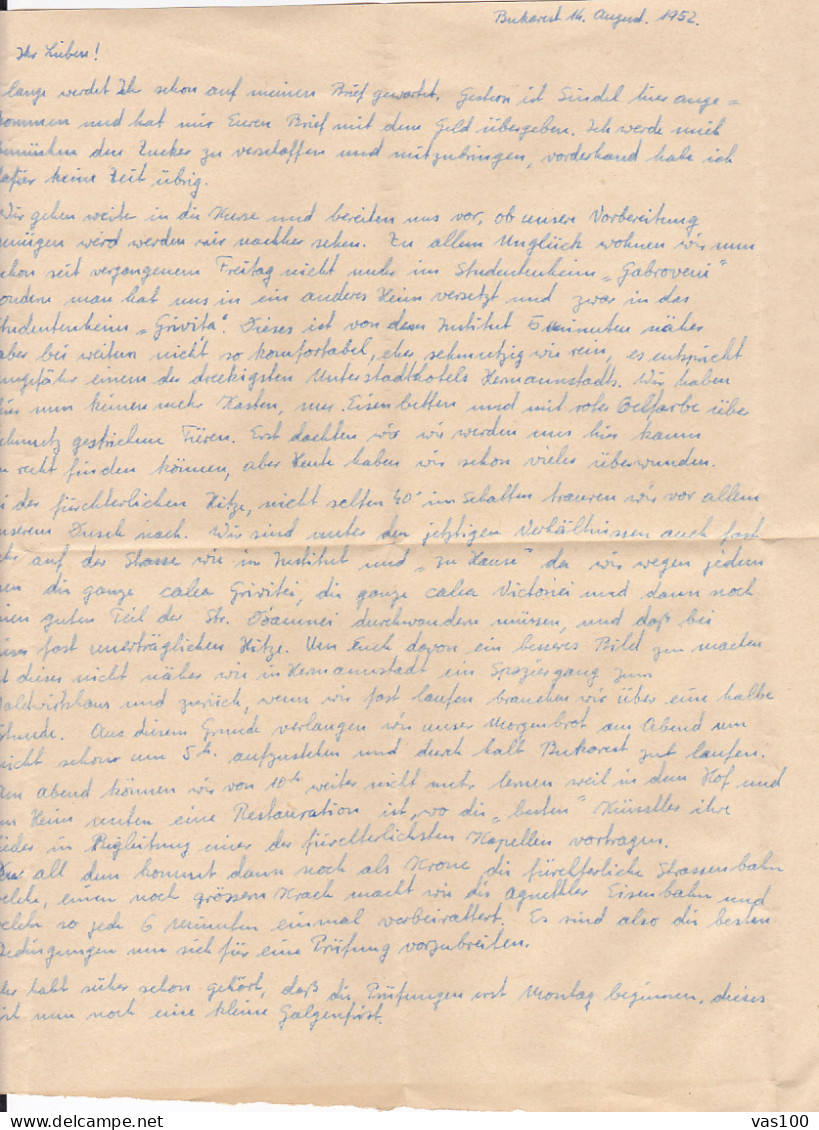 Bukarest 14. August. 1952.
Ihr Lieben!
lange werdet Ihr schon auf meinen Brief gewartet. Gestern ist Sindel hier ange=
kommen und hat mir Euren Brief mit dem Geld übergeben. Ich werde mich
bemühen den Zucker zu verschaffen und mitzubringen, vorderhand habe ich
dafür keine Zeit übrig.
Wir gehen weiter in die Kurse und bereiten uns vor, ob unsere Vorbereitung
genügen wird werden wir nachher sehen. Zu allem Unglück wohnen wir nun
schon seit vergangenem Freitag nicht mehr im Studentenheim „Gabroveni"
sondern man hat uns in ein anderes Heim versetzt und zwar in das
Studentenheim „Grivița". Dieses ist von dem Institut 5 minuten näher
aber bei weitem nicht so komfortabel, eher schmutzig wie rein, es entspricht
ungefähr einem der dreckigsten Unterstadthotels Hermannstadts. Wir haben
hier nun keinen mehr Kasten, nur Eisenbetten und mit roter Oelfarbe über
schmutz gestrichene Türen. Erst dachten wir wir werden uns hier kaum
recht finden können, aber Heute haben wir schon vieles überwunden.
der fürchterlichen Hitze, nicht selten 40° im Schatten trauren wir vor allem
unserem Dusch nach. Wir sind unter den jetztigen Verhältnissen auch fast
auf der Strasse wie im Institut und „zu Hause" da wir wegen jedem
die ganze calea Griviței, die ganze calea Victoriei und dann noch
einen guten Teil der Str. Doamnei durchwandern müssen, und daß bei
fast unerträglichen Hitze. Um Euch davon ein besseres Bild zu machen
ist dieses nicht näher wie in Hermannstadt ein Spaziergang zum
Waldwirtshaus und zurück, wenn wir fast laufen brauchen wir über eine halbe
Stunde. Aus diesem Grunde verlangen wir unser Morgenbrot am Abend um
nicht schon um 5h. aufzustehen und durch halb Bukarest zu laufen.
Am abend können wir von 10h weiter nicht mehr lernen weil in dem Hof und
Heim unten eine Restauration ist, wo die „besten" Künstler ihre
Lieder in Begleitung einer der fürchterlichsten Kapellen vortragen.
Zu all dem kommt dann noch als Krone die fürchterliche Strassenbahn
welche, einen noch grössern Krach macht wie die agnethler Eisenbahn und
welche so jede 6 minuten einmal vorbeirattert. Es sind also die besten
Bedingungen um sich für eine Prüfung vorzubreiten.
Ihr habt sicher schon gehört, daß die Prüfungen erst Montag beginnen, dieses
ist nun noch eine kleine Galgenfrist.
vas100